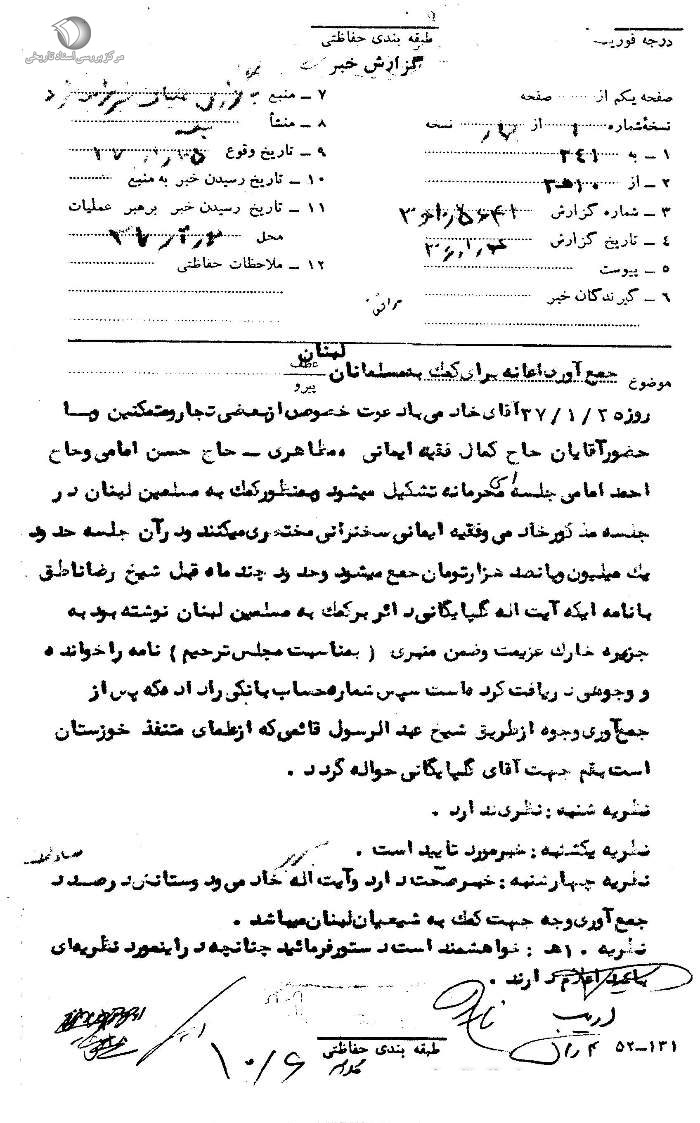 مرکز بررسی اسناد تاریخی
درجه فوریت
طبقه بندی حفاظتی
گزارش خبر
صفحه یکم از صفحه
نسخهٔ شماره از نسخه
۱ – به ۳۴۱
۲ – از ۱۰هـ۳
۳ – شماره گزارش
۴ – تاریخ گزارش
۵ – پیوست
۶ – گیرندگان خبر
۷ – منبع
۸ – منشأ
۹ – تاریخ وقوع
۱۰ – تاریخ رسیدن خبر به منبع
۱۱ – تاریخ رسیدن خبر برهبر عملیات
محل
۱۲ – ملاحظات حفاظتی
موضوع جمع آوری اعانه برای کمک به مسلمانان لبنان
عطف
پیرو
روز ۳۷/۱/۲۵ آقای خادمی با دعوت خصوصی از بعضی تجار و متمکنین و با
حضور آقایان حاج کمال فقیه ایمانی، مظاهری – حاج حسن امامی و حاج
احمد امامی جلسه ای محرمانه تشکیل میشود و بمنظور کمک به مسلمین لبنان در
جلسه مذکور خادمی و فقیه ایمانی سخنرانی مختصری میکنند و در آن جلسه حدود
یک میلیون و پانصد هزار تومان جمع میشود و حدود چند ماه قبل شیخ رضا ناطق
با نامه ایکه آیت اله گلپایگانی دائر بر کمک به مسلمین لبنان نوشته بود به
جزیره خارک عزیمت و ضمن منبری ( بمناسبت مجلس ترحیم ) نامه را خوانده
و وجوهی دریافت کرده است سپس شماره حساب بانکی را داده که پس از
جمع آوری وجوه از طریق شیخ عبدالرسول قائمی که از علمای متنفذ خوزستان
است بقم جهت آقای گلپایگانی حواله گردد .
نظریه شنبه : نظری ندارد .
نظریه یکشنبه : خبر مورد تایید است .
نظریه چهارشنبه : خبر صحت دارد و آیت اله خادمی و دوستانش در صدد
جمع آوری وجه جهت کمک به شیعیان لبنان میباشد .
نظریه ۱۰هـ : خواهشمند است دستور فرمائید چنانچه در اینمورد نظریه‌ای
اعلام دارند .
طبقه بندی حفاظتی
۱۰/۶
۵۲–۱۳۱